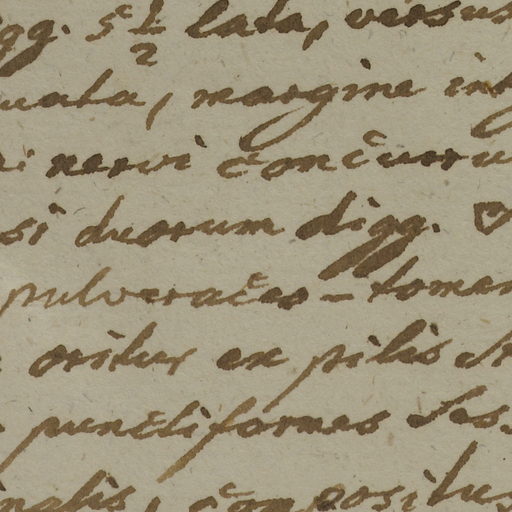 igg. 5 1/2 lata, versus
uata, margine int
nervi concurru
si duorum digg.
pulveraceo-tomen
oritur ex pilis st
punctiformes ses
nalis, compositus